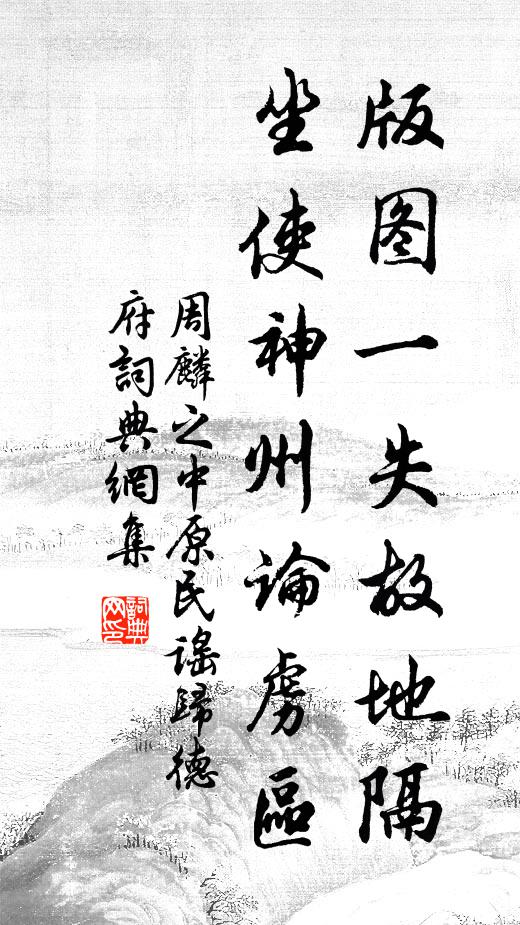 版图一失故地隔
坐使神州论虏區
周麟之中原民谣歸德
府詞典網集
詞典網印